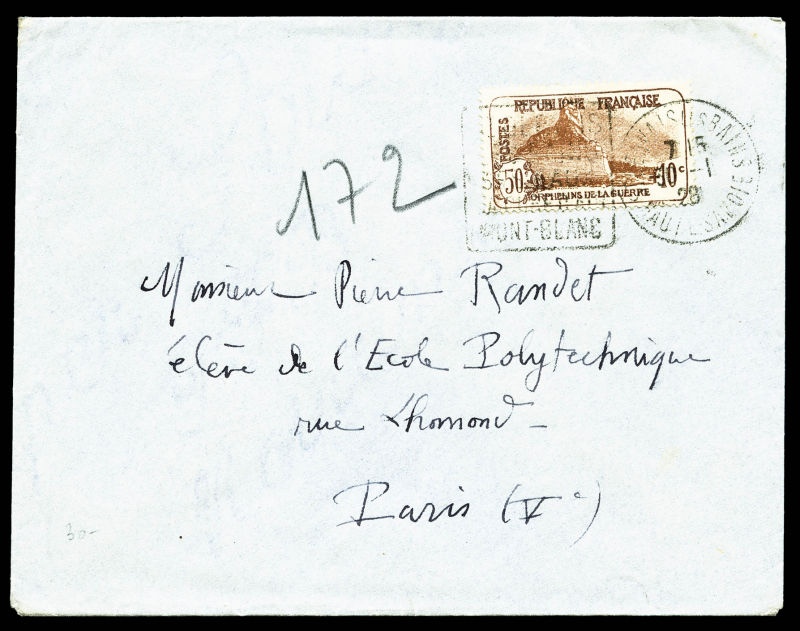 RÉPUBLIQUE FRANÇAISE
POSTES
50c +10c
ORPHELINS DE LA GUERRE
MONT-BLANC
7 15
-1
28
HAUTE SAVOIE
172
Monsieur Pierre Randet
élève de l'Ecole Polytechnique
rue Lhomond -
Paris (Ve)
30-